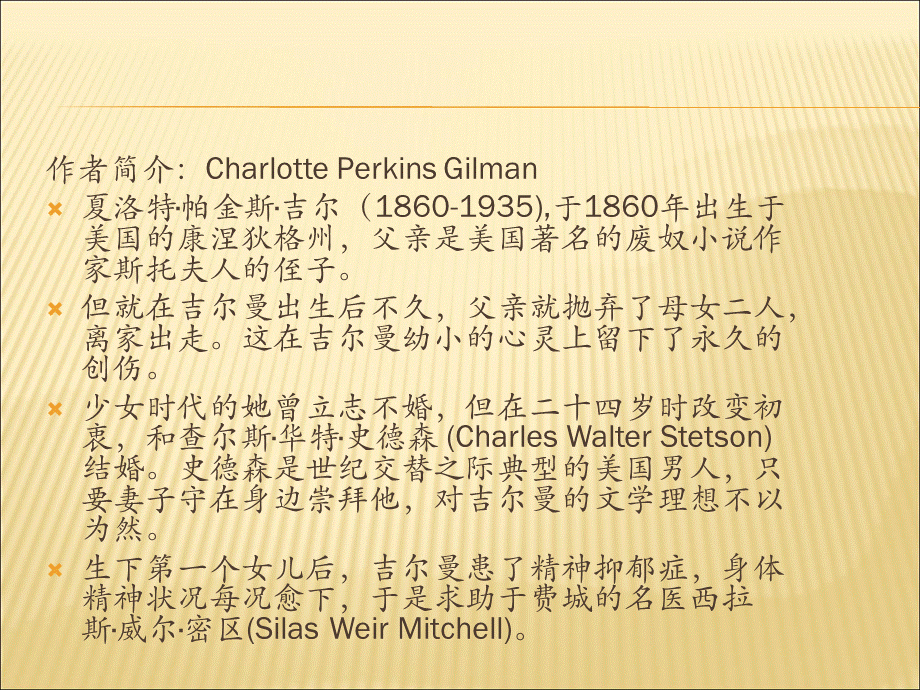 作者简介：Charlotte Perkins Gilman
夏洛特·帕金斯·吉尔（1860-1935),于1860年出生于
美国的康涅狄格州，父亲是美国著名的废奴小说作
家斯托夫人的侄子。
但就在吉尔曼出生后不久，父亲就抛弃了母女二人，
离家出走。这在吉尔曼幼小的心灵上留下了永久的
创伤。
少女时代的她曾立志不婚，但在二十四岁时改变初
衷，和查尔斯·华特·史德森 (Charles Walter Stetson)
结婚。史德森是世纪交替之际典型的美国男人，只
要妻子守在身边崇拜他，对吉尔曼的文学理想不以
为然。
生下第一个女儿后，吉尔曼患了精神抑郁症，身体
精神状况每况愈下，于是求助于费城的名医西拉
斯·威尔·密区(Silas Weir Mitchell)。